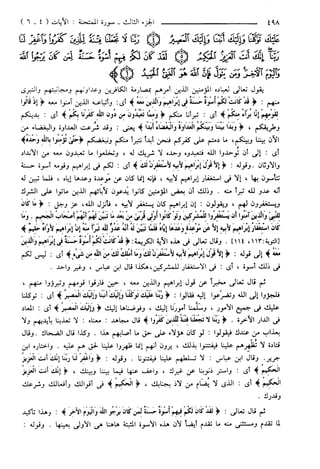 ٤٩٨ الجزء الثالث - سورة الممتحنة : الآيات ( ٤ - ٦ )
يقول تعالى لعباده المؤمنين الذين أمرهم بمصارمة الكافرين وعداوتهم ومجانبتهم والتبري
منهم : ﴿ قَدْ كَانَتْ لَكُمْ أُسْوَةٌ حَسَنَةٌ فِي إِبْرَاهِيمَ وَالَّذِينَ مَعَهُ ﴾ أي : وأتباعه الذين آمنوا معه ﴿ إِذْ قَالُوا
لِقَوْمِهِمْ إِنَّا بُرَآءُ مِنْكُمْ ﴾ أي : تبرأنا منكم ﴿ وَمِمَّا تَعْبُدُونَ مِنْ دُونِ اللَّهِ كَفَرْنَا بِكُمْ ﴾ أي : بدينكم
وطريقكم ، ﴿ وَبَدَا بَيْنَنَا وَبَيْنَكُمُ الْعَدَاوَةُ وَالْبَغْضَاءُ أَبَدًا ﴾ يعني : وقد شرعت العداوة والبغضاء من
الآن بيننا وبينكم، ما دمتم على كفركم فنحن أبداً نتبرأ منكم ونبغضكم ﴿ حَتَّى تُؤْمِنُوا بِاللَّهِ وَحْدَهُ ﴾
أي : إلى أن توحدوا الله فتعبدوه وحده لا شريك له ، وتخلعوا ما تعبدون معه من الأنداد
والأوثان. وقوله : ﴿ إِلَّا قَوْلَ إِبْرَاهِيمَ لِأَبِيهِ لَأَسْتَغْفِرَنَّ لَكَ ﴾ أي : لكم في إبراهيم وقومه أسوة حسنة
تتأسون بها ، إلا في استغفار إبراهيم لأبيه ، فإنه إنما كان عن موعدة وعدها إياه ، فلما تبين له
أنه عدو لله تبرأ منه . وذلك أن بعض المؤمنين كانوا يدعون لآبائهم الذين ماتوا على الشرك
ويستغفرون لهم ، ويقولون : إن إبراهيم كان يستغفر لأبيه ، فأنزل الله، عز وجل : ﴿ مَا كَانَ
لِلنَّبِيِّ وَالَّذِينَ آمَنُوا أَنْ يَسْتَغْفِرُوا لِلْمُشْرِكِينَ وَلَوْ كَانُوا أُولِي قُرْبَى مِنْ بَعْدِ مَا تَبَيَّنَ لَهُمْ أَنَّهُمْ أَصْحَابُ الْجَحِيمِ . وَمَا
كَانَ اسْتِغْفَارُ إِبْرَاهِيمَ لِأَبِيهِ إِلَّا عَنْ مَوْعِدَةٍ وَعَدَهَا إِيَّاهُ فَلَمَّا تَبَيَّنَ لَهُ أَنَّهُ عَدُوٌّ لِلَّهِ تَبَرَّأَ مِنْهُ إِنَّ إِبْرَاهِيمَ لَأَوَّاهٌ حَلِيمٌ ﴾
[التوبة: ١١٣، ١١٤]. وقال تعالى في هذه الآية الكريمة: ﴿ قَدْ كَانَتْ لَكُمْ أُسْوَةٌ حَسَنَةٌ فِي إِبْرَاهِيمَ وَالَّذِينَ
مَعَهُ ﴾ إلى قوله : ﴿ إِلَّا قَوْلَ إِبْرَاهِيمَ لِأَبِيهِ لَأَسْتَغْفِرَنَّ لَكَ وَمَا أَمْلِكُ لَكَ مِنَ اللَّهِ مِنْ شَيْءٍ ﴾ أي : ليس لكم
في ذلك أسوة ، أي : في الاستغفار للمشركين،هكذا قال ابن عباس ، وغير واحد .
ثم قال تعالى مخبراً عن قول إبراهيم والذين معه ، حين فارقوا قومهم وتبرؤوا منهم ،
فلجؤوا إلى الله وتضرعوا إليه فقالوا : ﴿ رَبَّنَا عَلَيْكَ تَوَكَّلْنَا وَإِلَيْكَ أَنَبْنَا وَإِلَيْكَ الْمَصِيرُ ﴾ أي : توكلنا
عليك في جميع الأمور ، وسلَّمنا أمورَنا إليك ، وفوضناها إليك ﴿ وَإِلَيْكَ الْمَصِيرُ ﴾ أي : المعاد
في الدار الآخرة . ﴿ رَبَّنَا لَا تَجْعَلْنَا فِتْنَةً لِلَّذِينَ كَفَرُوا ﴾ قال مجاهد : معناه : لا تعذبنا بأيديهم ولا
بعذاب من عندك فيقولوا : لو كان هؤلاء على حق ما أصابهم هذا . وكذا قال الضحاك . وقال
قتادة لا تُظهرهم علينا فيفتتنوا بذلك ، يرون أنهم إنما ظهروا علينا لحق هم عليه . واختاره ابن
جرير. وقال ابن عباس : لا تسلطهم علينا فيفتنونا . وقوله : ﴿ وَاغْفِرْ لَنَا رَبَّنَا إِنَّكَ أَنْتَ الْعَزِيزُ
الْحَكِيمُ ﴾ أي : واستر ذنوبنا عن غيرك ، واعف عنها فيما بيننا وبينك ، ﴿ إِنَّكَ أَنْتَ الْعَزِيزُ
الْحَكِيمُ ﴾ أي : الذي لا يُضام من لاذ بجنابك ، ﴿ الْحَكِيمُ ﴾ في أقوالك وأفعالك وشرعك
وقدرك .
ثم قال تعالى : ﴿ لَقَدْ كَانَ لَكُمْ فِيهِمْ أُسْوَةٌ حَسَنَةٌ لِمَنْ كَانَ يَرْجُو اللَّهَ وَالْيَوْمَ الْآخِرَ ﴾ : وهذا تأكيد
لما تقدم ومستثنى منه ما تقدم أيضاً لأن هذه الأسوة المثبتة هاهنا هي الأولى بعينها . وقوله :